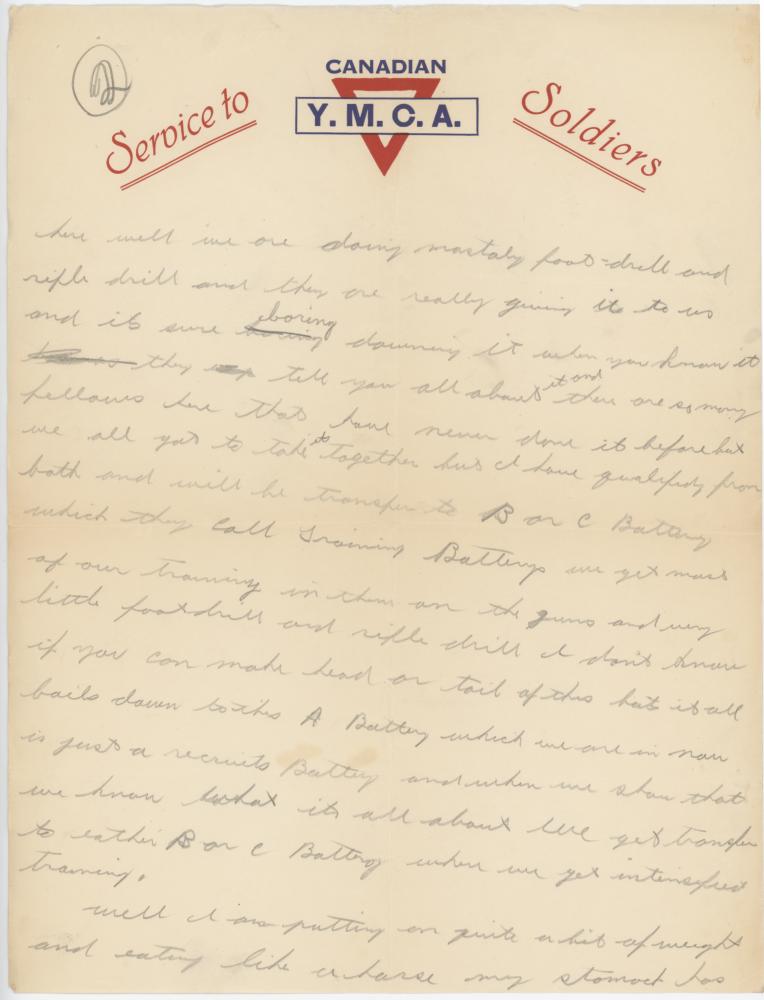 2
CANADIAN
Service to Y. M. C. A. Soldiers
here well we are doing mostaly foot-drill and
rifle drill and they are really giving it to us
and its sure boring downing it when you know it
they tell you all about it and there are so many
fellows here that have never done it before but
we all got to take it together but I have qualifidy from
both and will be transfer to B or C Battery
which they Call Training Batterys we get most
of our training in them on the guns and very
little foot drill and rifle drill I don't know
if you can make head or tail of this but it all
boils down to this A Battery which we are in now
is just a recruits Battery and when we show that
we know what its all about we get transfer
to eather B or C Battery when we get intensified
training.
well I am putting on quite a bit of weight
and eating like a horse my stomack has